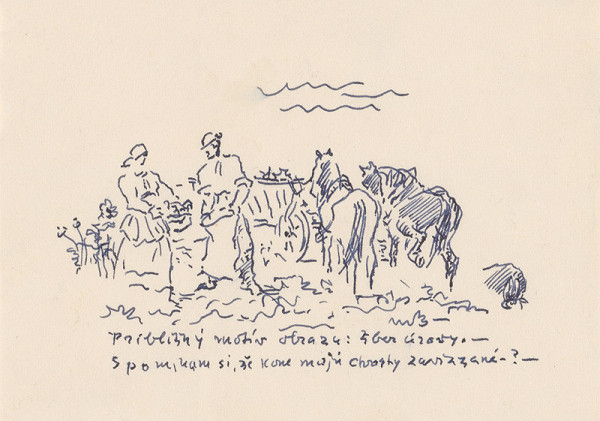 MB—
Približný motív obrazu: Zber úrody.—
Spomínam si, že kone majú chvosty zaviazané-?—